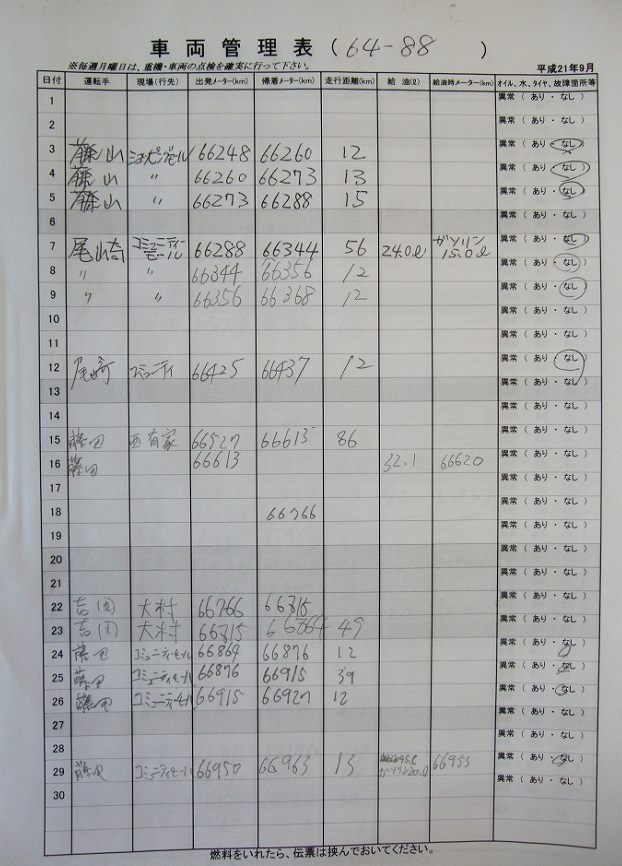 車両管理表(64-88)
※毎週月曜日は、重機・車両の点検を確実に行って下さい。
平成21年9月
日付 運転手 現場(行先) 出発メーター(km) 帰着メーター(km) 走行距離(km) 給油(ℓ) 給油時メーター(km) オイル、水、タイヤ、故障箇所等
1 異常 ( あり ・ なし )
2 異常 ( あり ・ なし )
3 藤山 66248 66260 12 異常 ( あり ・ なし )
4 藤山 〃 66260 66273 13 異常 ( あり ・ なし )
5 藤山 〃 66273 66288 15 異常 ( あり ・ なし )
6 異常 ( あり ・ なし )
7 尾崎 コミュニティーモール 66288 66344 56 24.0ℓ ガソリン 15.0ℓ 異常 ( あり ・ なし )
8 〃 〃 66344 66356 12 異常 ( あり ・ なし )
9 〃 〃 66356 66368 12 異常 ( あり ・ なし )
10 異常 ( あり ・ なし )
11 異常 ( あり ・ なし )
12 尾崎 コミュニティ 66425 66437 12 異常 ( あり ・ なし )
13 異常 ( あり ・ なし )
14 異常 ( あり ・ なし )
15 藤田 西有家 66527 66613 86 異常 ( あり ・ なし )
16 藤田 66613 32.1 66620 異常 ( あり ・ なし )
17 異常 ( あり ・ なし )
18 66766 異常 ( あり ・ なし )
19 異常 ( あり ・ なし )
20 異常 ( あり ・ なし )
21 異常 ( あり ・ なし )
22 吉田 大村 66766 66815 異常 ( あり ・ なし )
23 吉田 大村 66815 66864 49 異常 ( あり ・ なし )
24 藤田 コミュニティモール 66864 66876 12 異常 ( あり ・ なし )
25 藤田 コミュニティモール 66876 66915 39 異常 ( あり ・ なし )
26 藤田 コミュニティーモール 66915 66927 12 異常 ( あり ・ なし )
27 異常 ( あり ・ なし )
28 異常 ( あり ・ なし )
29 藤田 コミュニティモール 66950 66963 13 ガソリン20.0 66953 異常 ( あり ・ なし )
30 異常 ( あり ・ なし )
燃料をいれたら、伝票は挟んでおいてください。